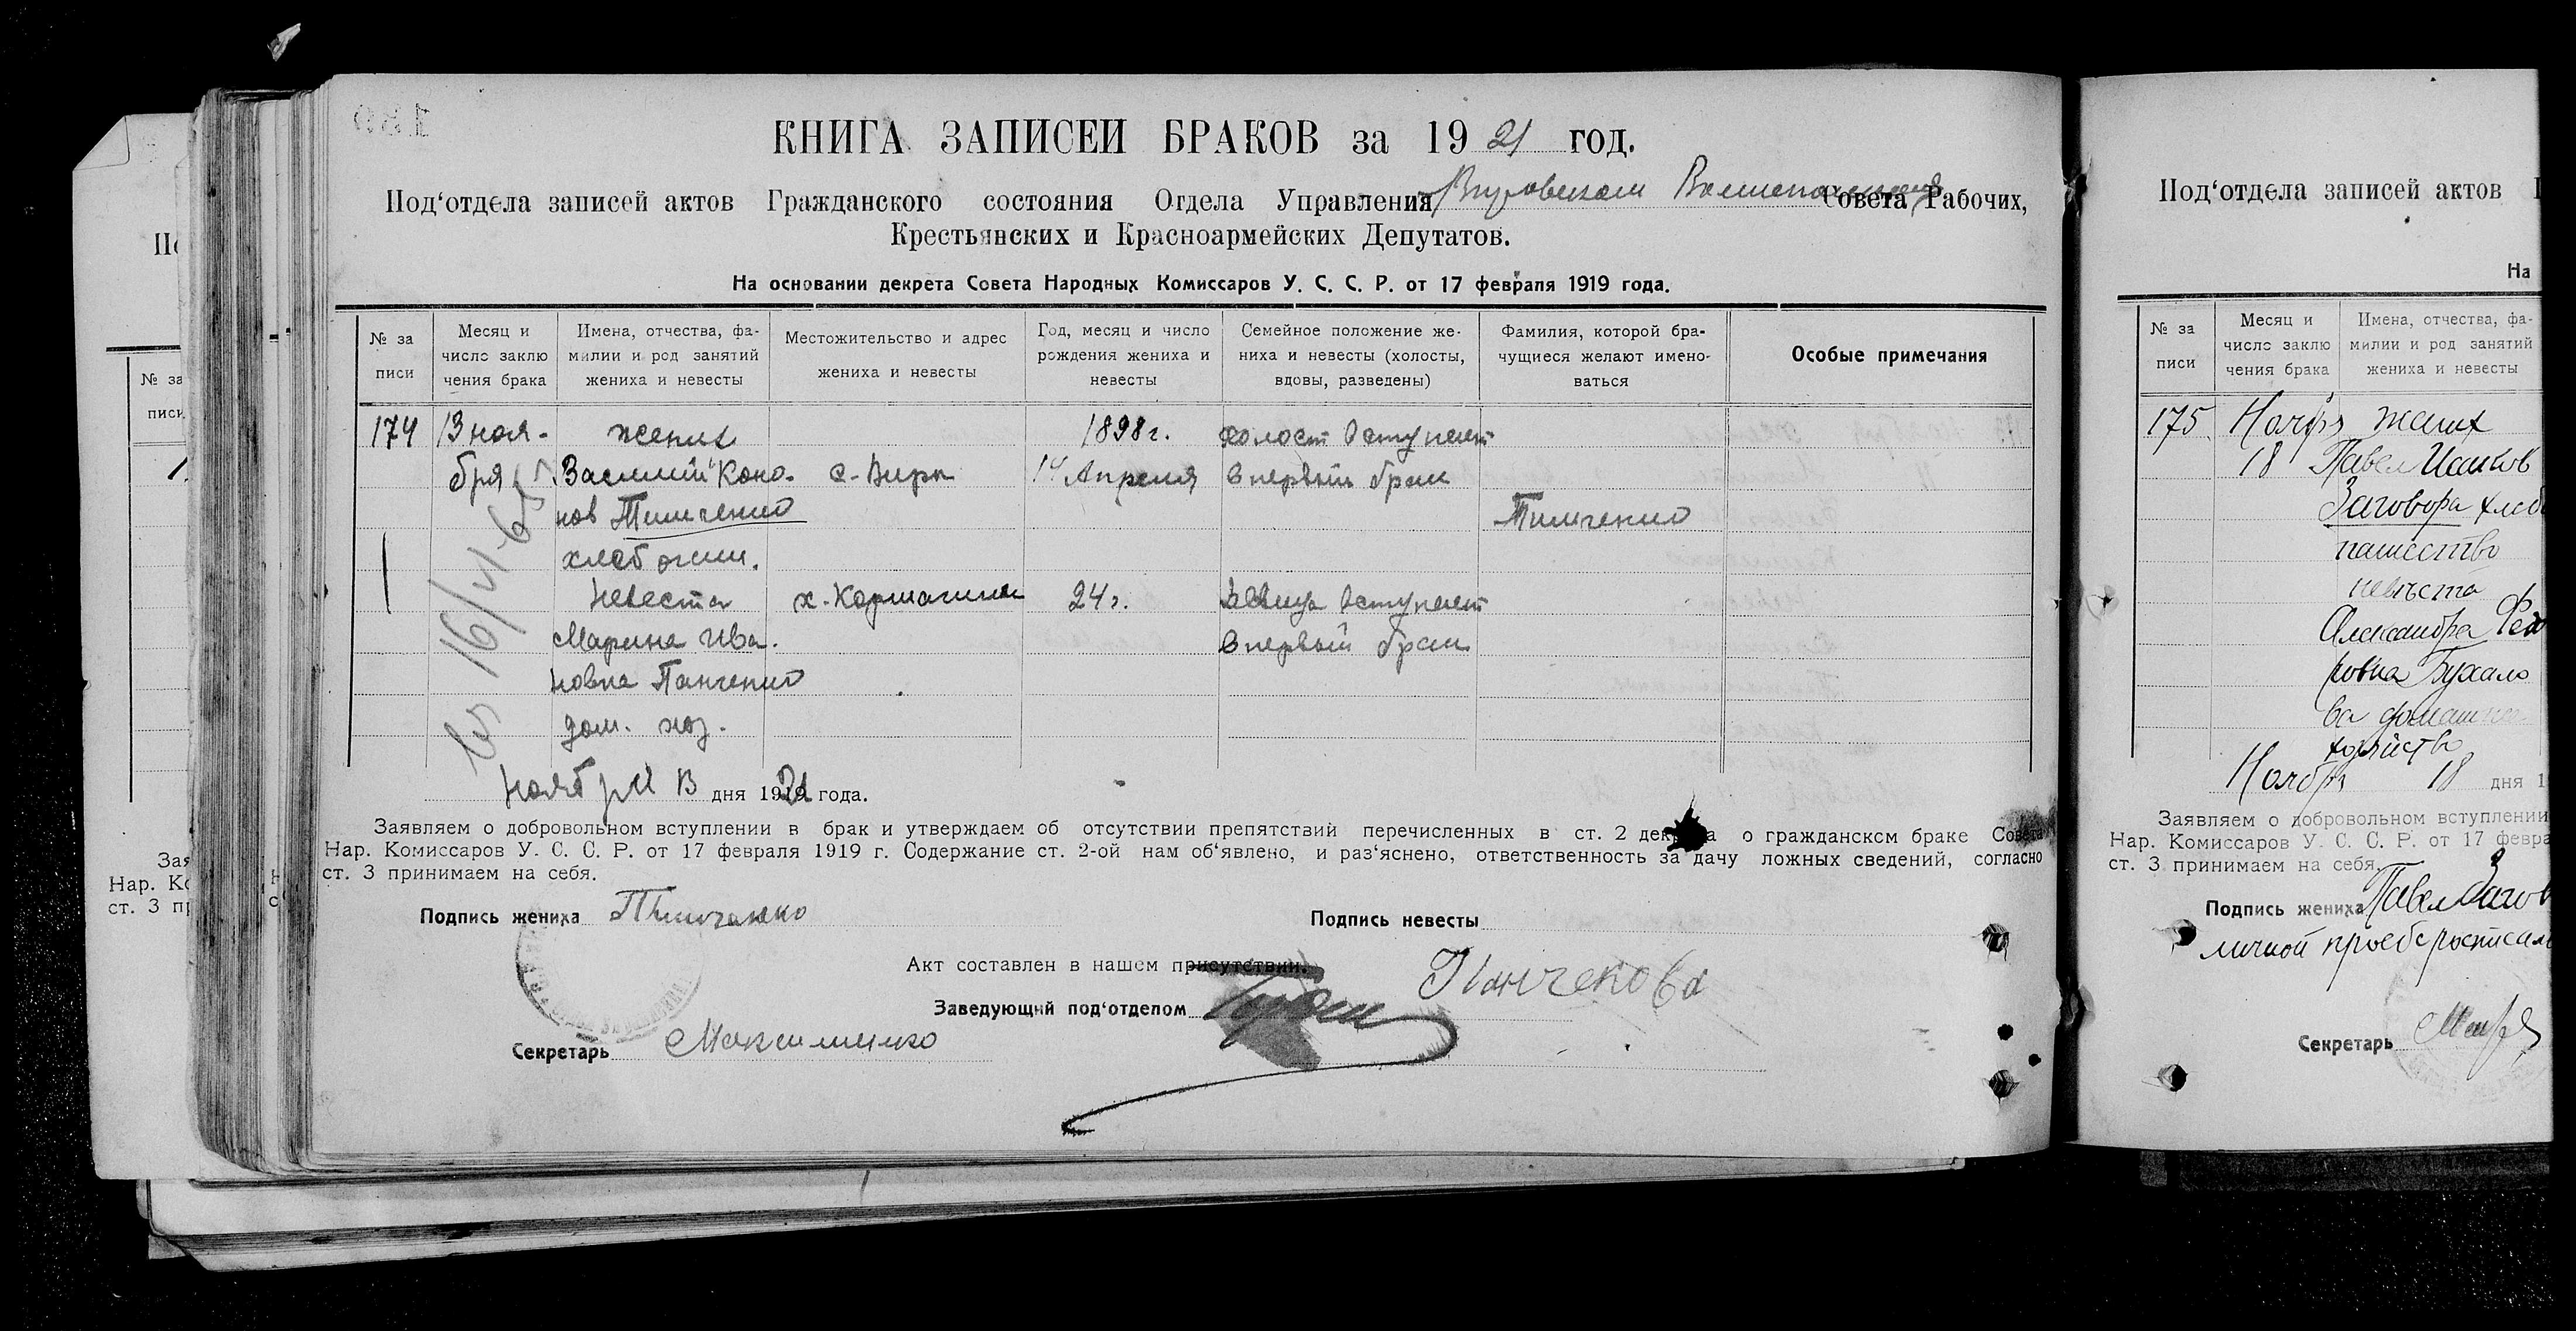 КНИГА ЗАПИСЕЙ БРАКОВ за 1921 год.
Под‘отдела записей актов Гражданского состояния Отдела Управления Совета Рабочих,
Крестьянских и Красноармейских Депутатов.
На основании декрета Совета Народных Комиссаров У. С. С. Р. от 17 февраля 1919 года.
№ за писи
Месяц и число заклю чения брака
Имена, отчества, фа- милии и род занятий жениха и невесты
Местожительство и адрес жениха и невесты
Год, месяц и число рождения жениха и невесты
Семейное положение же- ниха и невесты (холосты, вдовы, разведены)
Фамилия, которой бра- чущиеся желают имено- ваться
Особые примечания
174 13 ноя- жених 1898 г. холост вступает
бря Василий Коно- с. Виры 14 Апреля в первый брак
нов Тимченко Тимченко
хлебопаш.
Невеста 24 г. девица вступает
Марина Ива- в первый брак
новна Панченко
дом. хоз.
16/VI-65
Ноября 13 дня 1921 года.
Заявляем о добровольном вступлении в брак и утверждаем об отсутствии препятствий перечисленных в ст. 2 декрета о гражданском браке Совета
Нар. Комиссаров У. С. С. Р. от 17 февраля 1919 г. Содержание ст. 2-ой нам об‘явлено, и раз‘яснено, ответственность за дачу ложных сведений, согласно
ст. 3 принимаем на себя.
Подпись жениха Тимченко Подпись невесты
Панченкова
Акт составлен в нашем присутствии.
Заведующий под‘отделом
Секретарь Максименко
Под‘отдела записей актов
На
№ за писи
Месяц и число заклю чения брака
Имена, отчества, фа- милии и род занятий жениха и невесты
175 Ноября жених
18 Павел
Заговора
пашество
невѣста
Александра
ровна Бухало
ва домашнее
хозяйство
Ноября 18 дня 1
Заявляем о добровольном вступлении
Нар. Комиссаров У. С. С. Р. от 17 февра
ст. 3 принимаем на себя.
Подпись жениха Павел Загов
личной
Секретарь
№ за
писи
Зая
Нар. Ко
ст. 3 пр